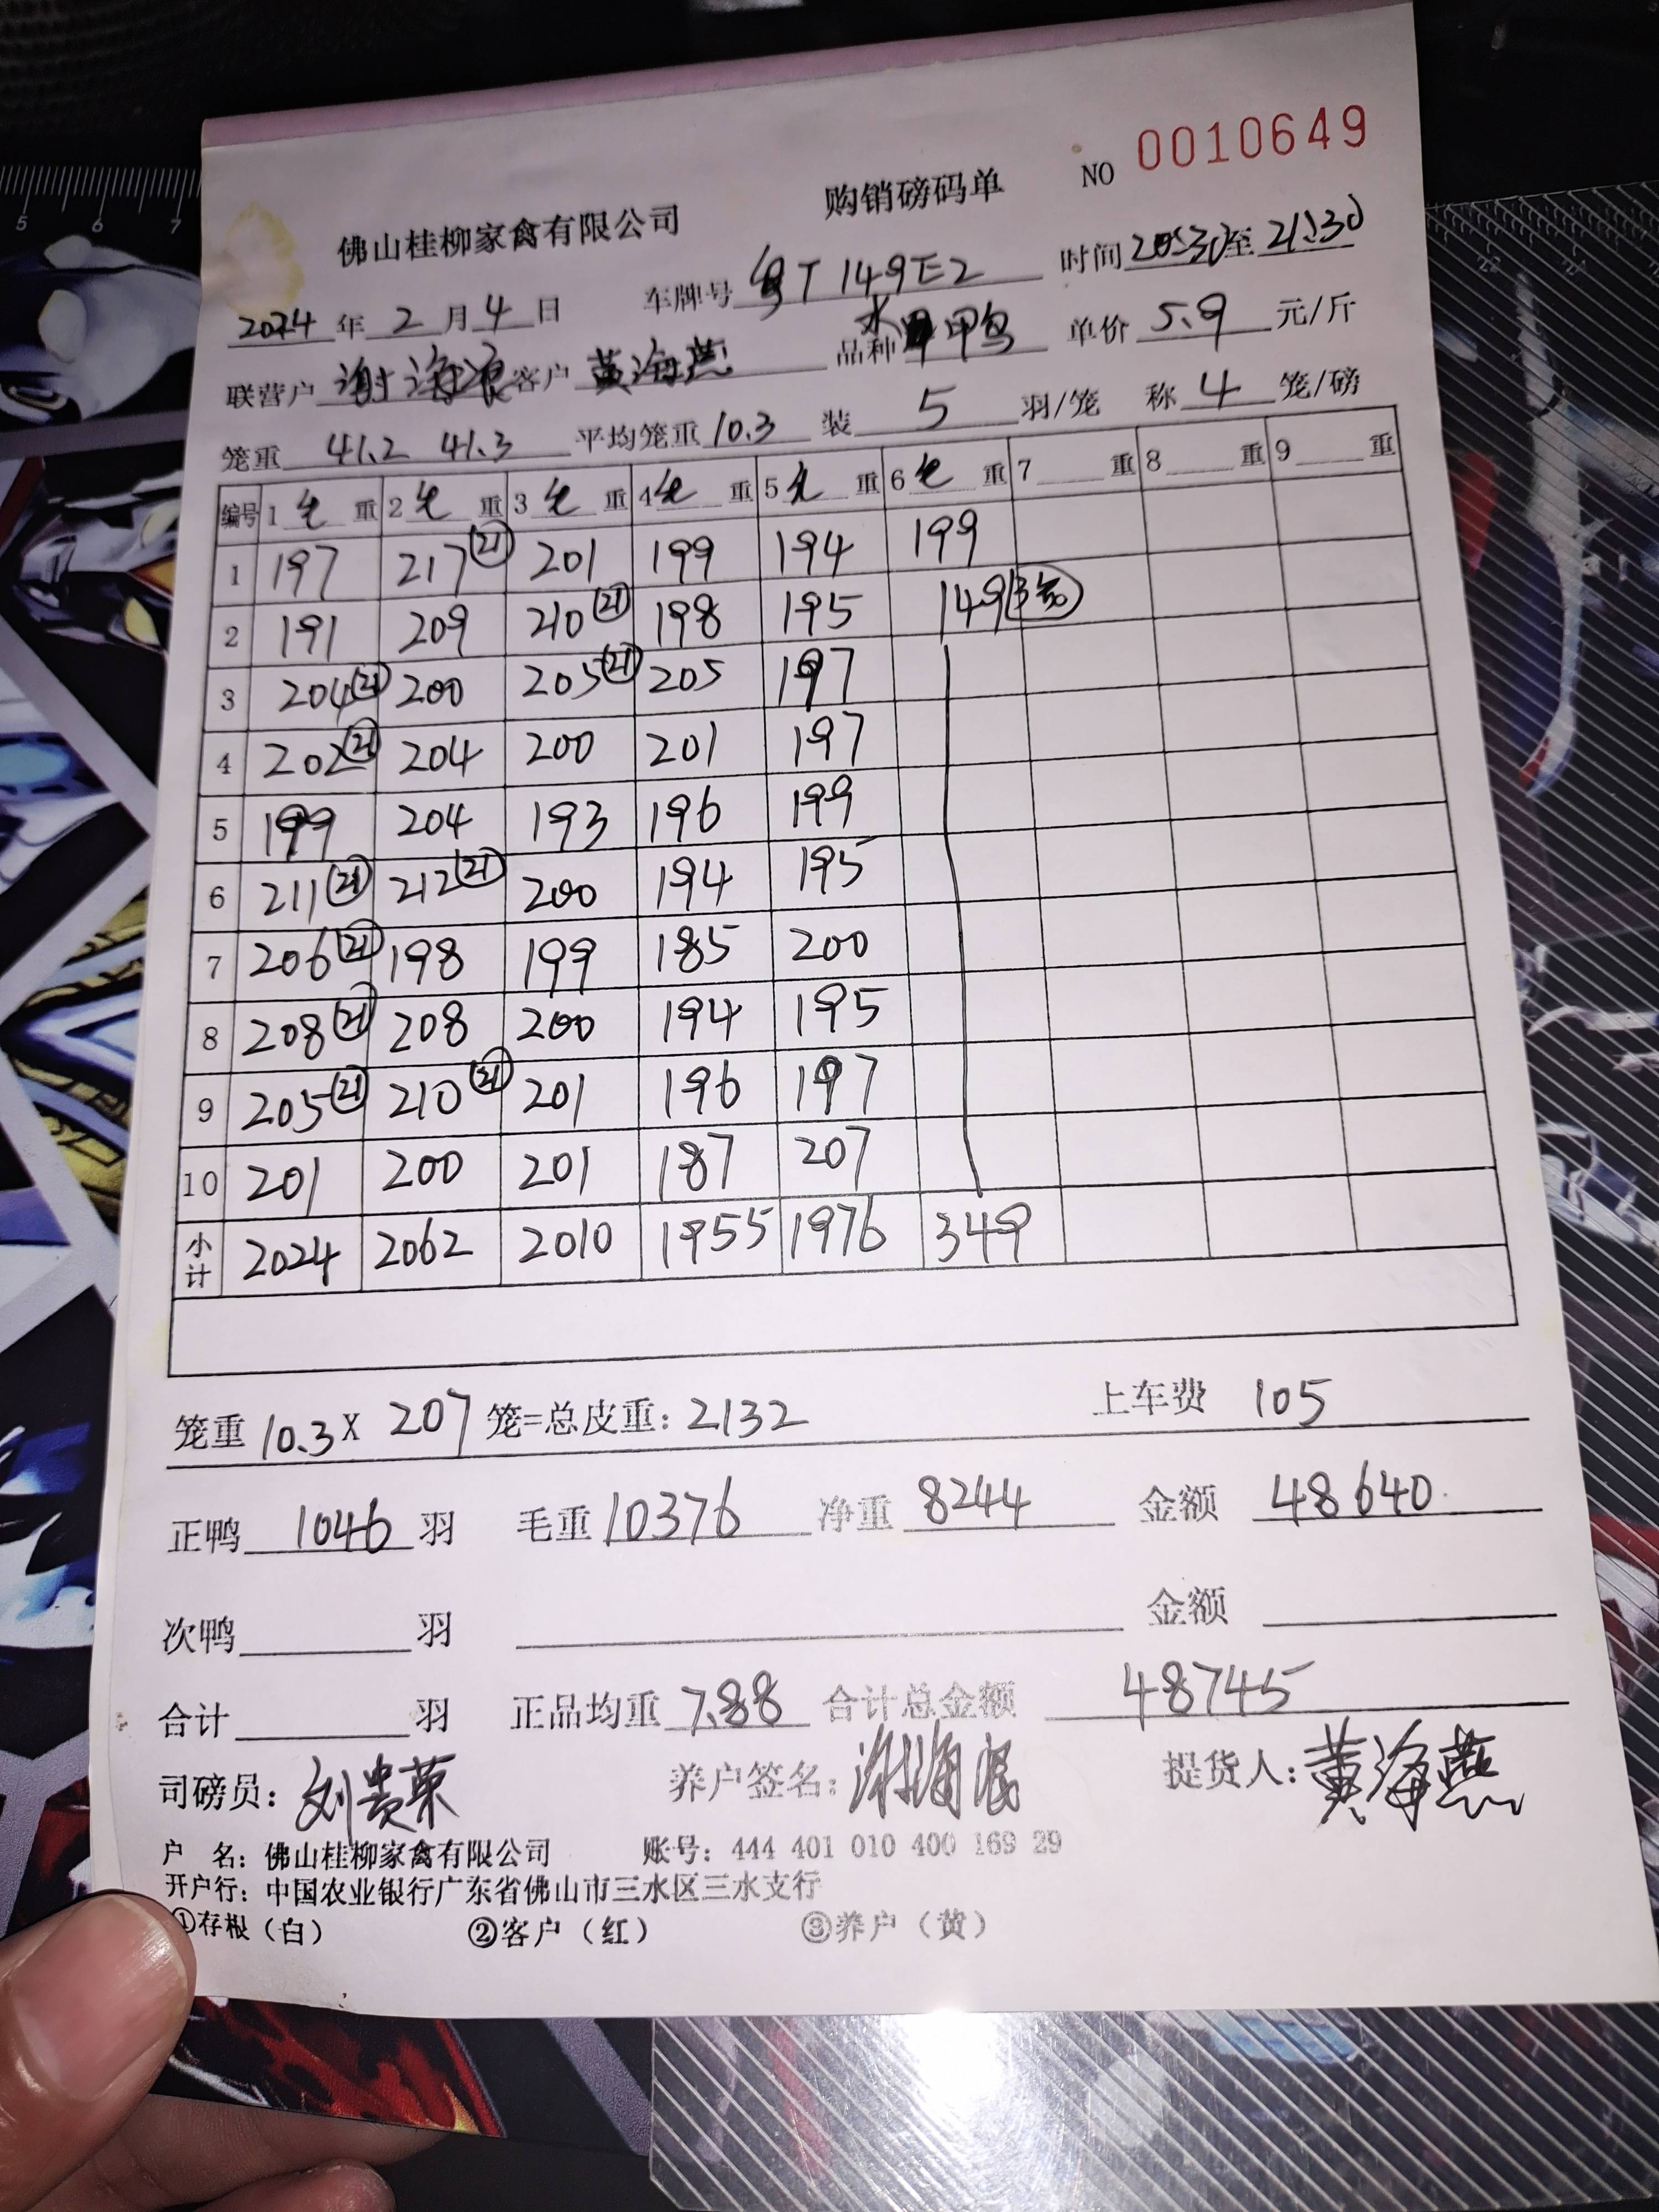 购销磅码单 NO 0010649
佛山桂柳家禽有限公司
2024 年 2 月 4 日 车牌号 粤T 149E2 时间 20:30 至 21:30
联营户 谢海浪 客户 黄海燕 品种 水 甲鸟 单价 5.9 元/斤
笼重 41.2 41.3 平均笼重 10.3 装 5 羽/笼 称 4 笼/磅
编号 1 毛 重 2 毛 重 3 毛 重 4 毛 重 5 毛 重 6 毛 重 7 重 8 重 9 重
1 197 217 (21) 201 199 194 199
2 191 209 210 (21) 198 195 149 (3笼)
3 204 (21) 200 205 (21) 205 197
4 202 (21) 204 200 201 197
5 199 204 193 196 199
6 211 (21) 212 (21) 200 194 195
7 206 (21) 198 199 185 200
8 208 (21) 208 200 194 195
9 205 (21) 210 (21) 201 196 197
10 201 200 201 187 207
小计 2024 2062 2010 1955 1976 349
笼重 10.3 X 207 笼=总皮重: 2132 上车费 105
正鸭 1046 羽 毛重 10376 净重 8244 金额 48640
次鸭 羽 金额
合计 羽 正品均重 7.88 合计总金额 48745
司磅员: 刘贵荣 养户签名: 谢海 提货人: 黄海燕
户 名: 佛山桂柳家禽有限公司 账号: 444 401 010 400 169 29
开户行: 中国农业银行广东省佛山市三水区三水支行
①存根（白） ②客户（红） ③养户（黄）